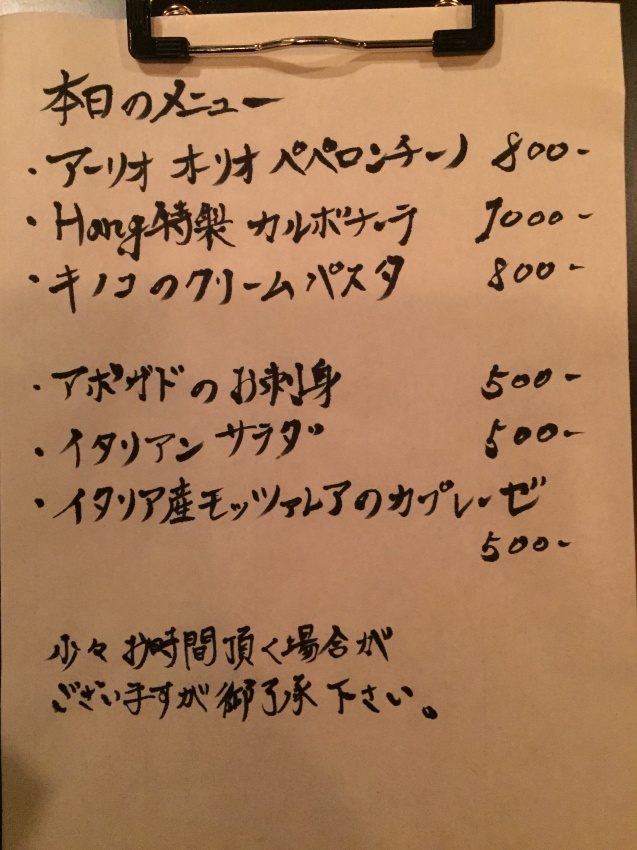 本日のメニュー
・アーリオ オーリオ ペペロンチーノ 800-
・Hang特製 カルボナーラ 1000-
・キノコのクリームパスタ 800-
・アボガドのお刺身 500-
・イタリアンサラダ 500-
・イタリア産モッツァレアのカプレーゼ
500-
少々お時間頂く場合が
ございますが御了承下さい。